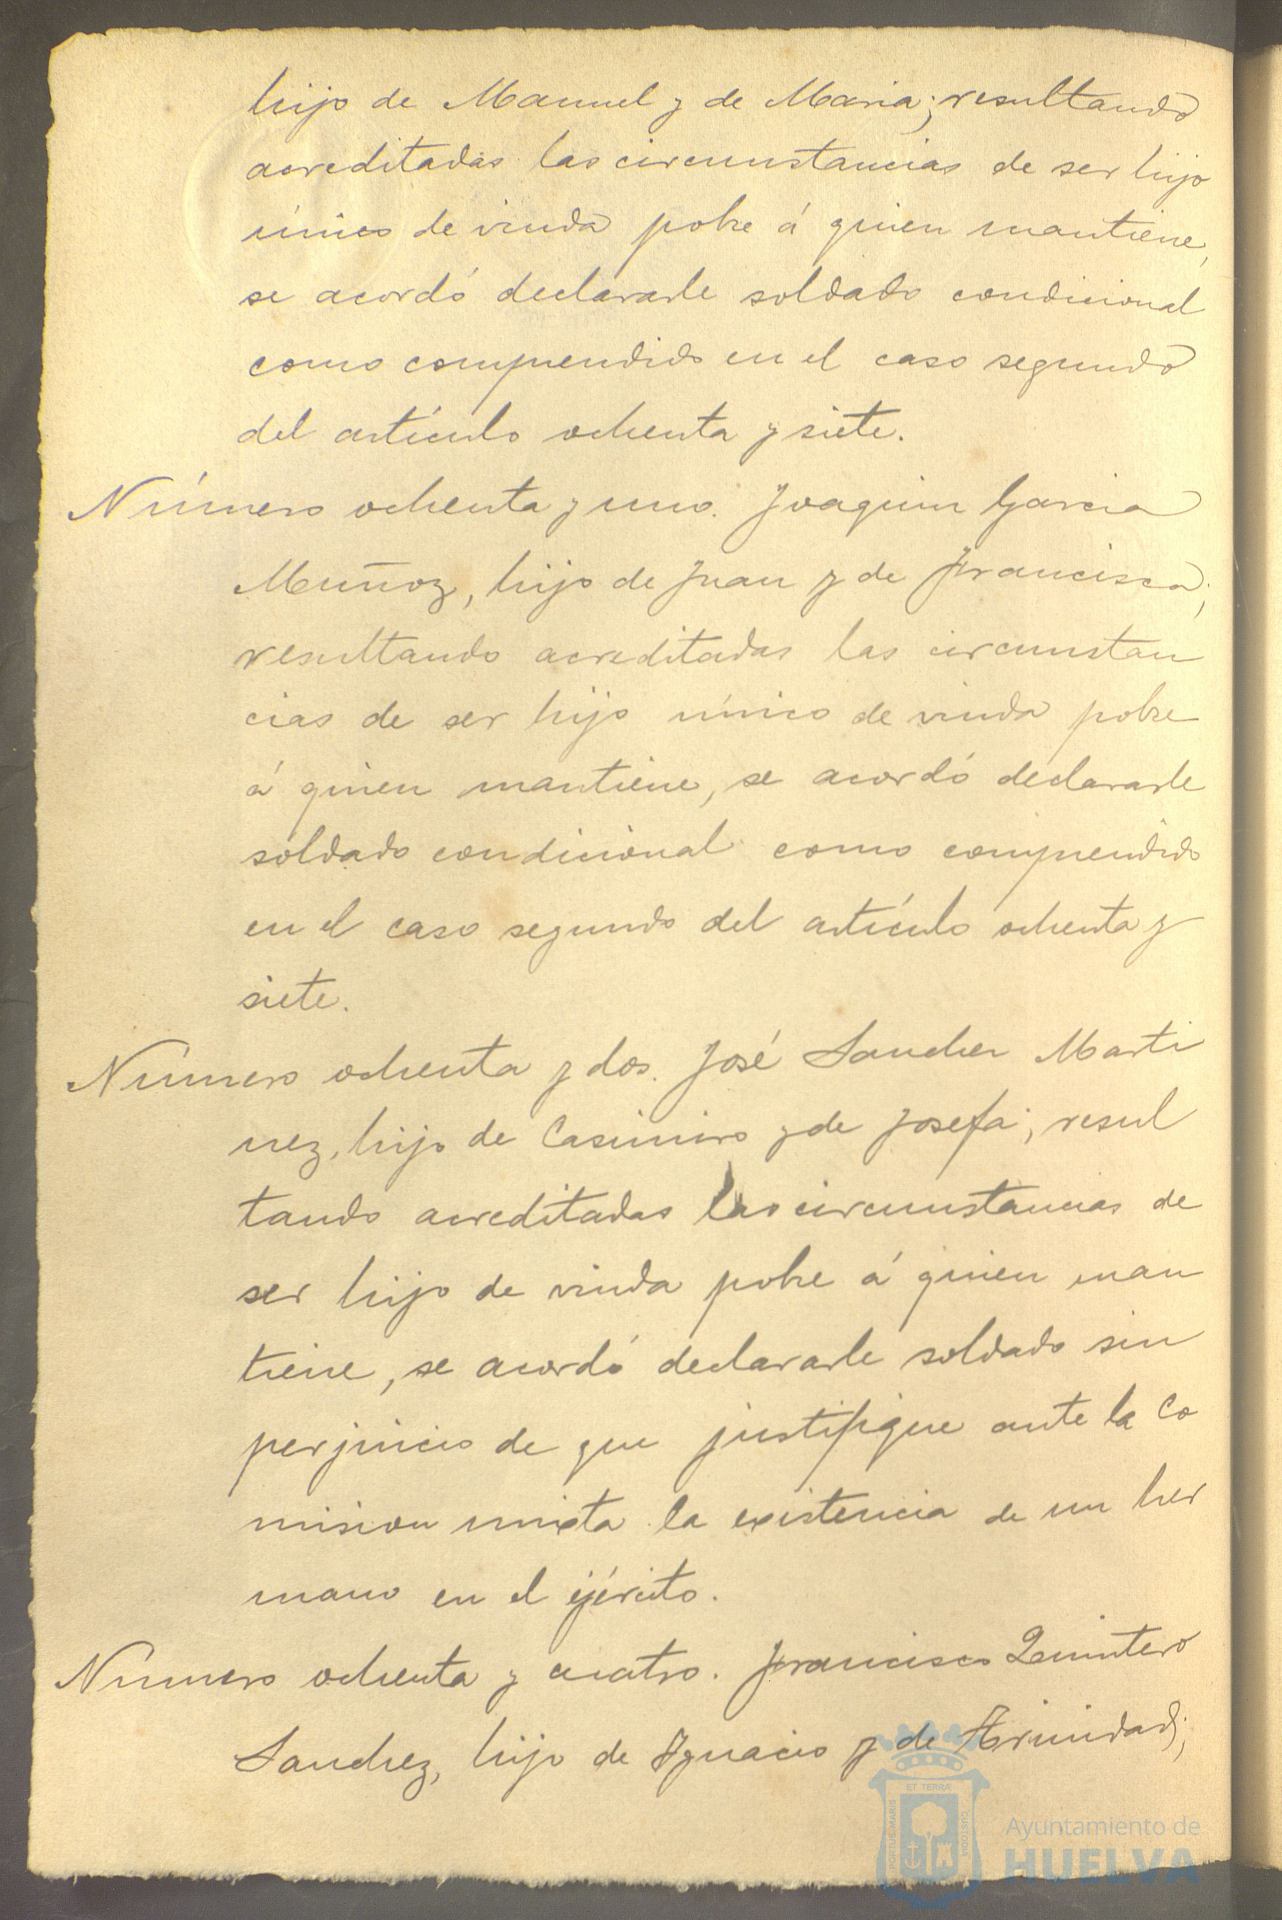 hijo de Manuel y de Maria; resultando
acreditadas las circunstancias de ser hijo
único de viuda pobre á quien mantiene,
se acordó declararle soldado condicional
como comprendido en el caso segundo
del artículo ochenta y siete.
Número ochenta y uno. Joaquin Garcia
Muñoz, hijo de Juan y de Francisca;
resultando acreditadas las circunstan
cias de ser hijo único de viuda pobre
á quien mantiene, se acordó declararle
soldado condicional como comprendido
en el caso segundo del artículo ochenta y
siete.
Número ochenta y dos. José Sanchez Marti
nez, hijo de Casimiro y de Josefa; resul
tando acreditadas las circunstancias de
ser hijo de viuda pobre á quien man
tiene, se acordó declararle soldado sin
perjuicio de que justifique ante la Co
mision mixta la existencia de un her
mano en el ejército.
Número ochenta y cuatro. Francisco Quintero
Sanchez, hijo de Ignacio y de Trinidad;
ET TERRÆ
PORTUS MARIS
CUSTODIA
Ayuntamiento de
HUELVA